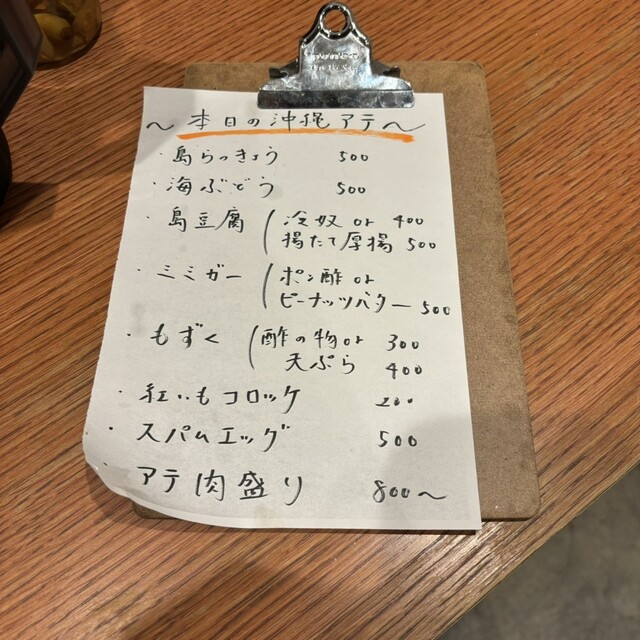 〜本日の沖縄アテ〜
・島らっきょう 500
・海ぶどう 500
・島豆腐 ( 冷奴 or 400
揚たて厚揚 500
・ミミガー ( ポン酢 or
ピーナッツバター 500
・もずく ( 酢の物 or 300
天ぷら 400
・紅いもコロッケ 200
・スパムエッグ 500
・アテ肉盛り 800〜